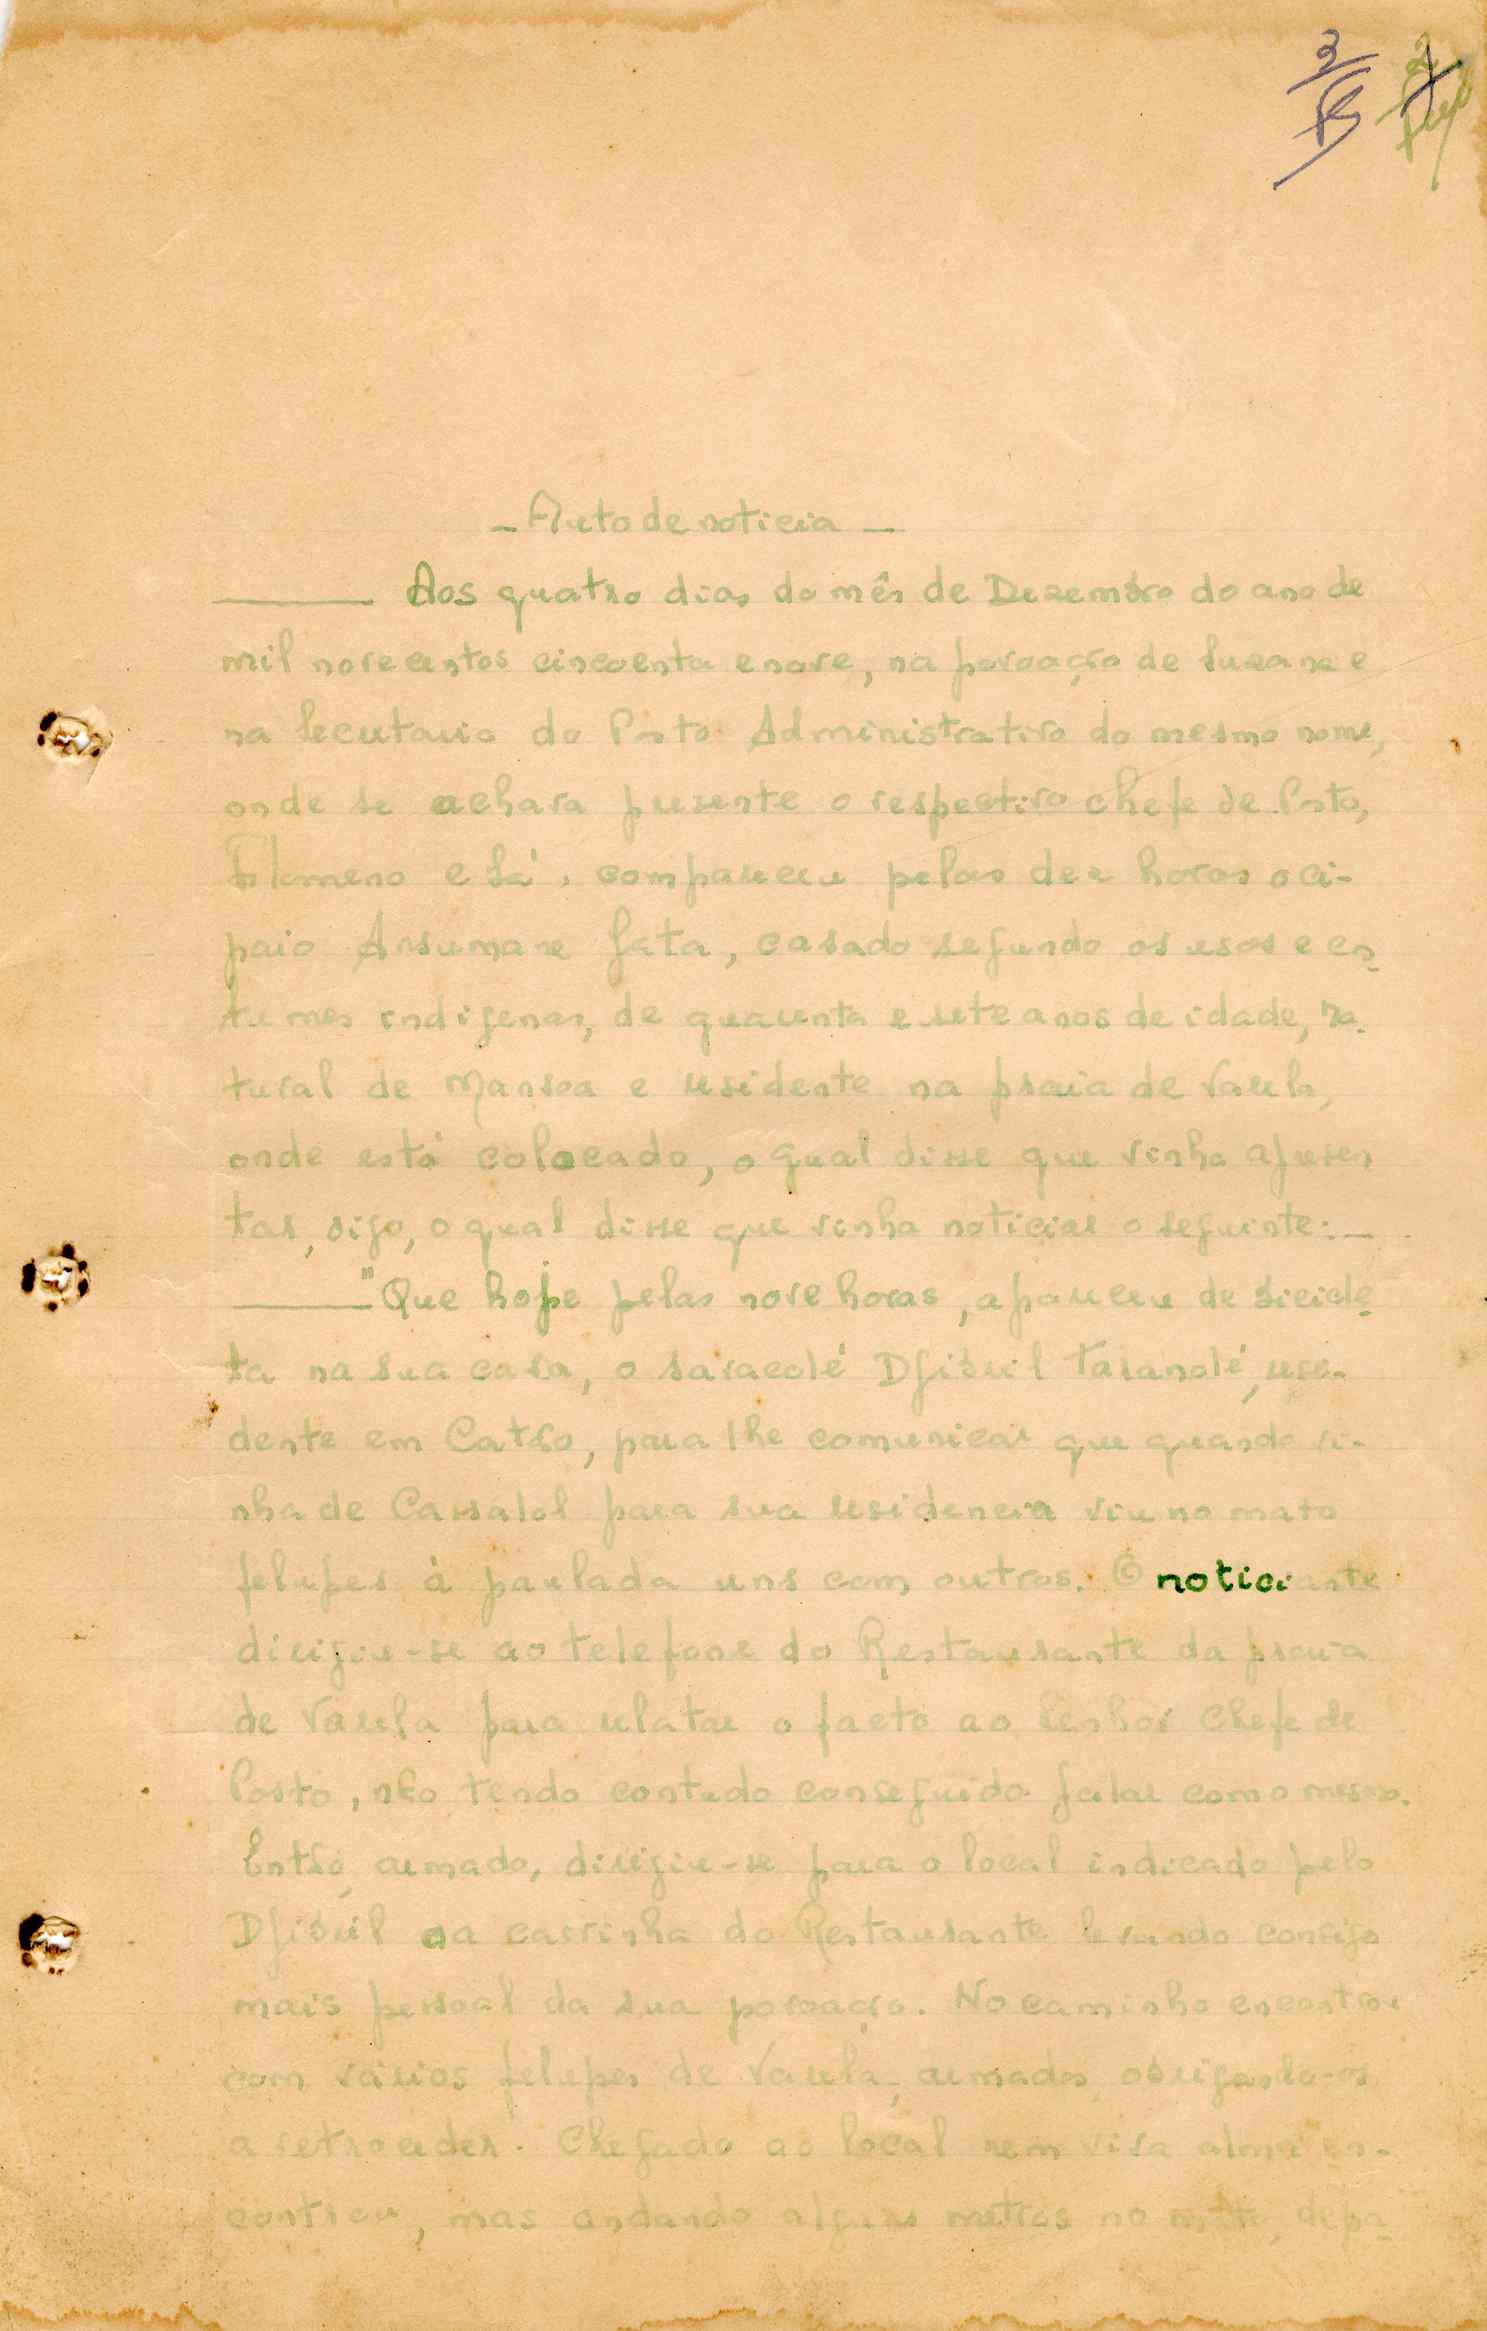 2 2
- Auto de noticia -
Aos quatro dias do mês de Dezembro do ano de
mil novecentos cincoenta e nove, na povoação de Suzana e
na Secretaria do Posto Administrativo do mesmo nome,
onde se achava presente o respectivo chefe de Posto,
Filomeno e Sá, compareceu pelas dez horas o ci-
paio Ansumane Sata, casado segundo os usos e cos-
tumes indigenas, de quarenta e sete anos de idade, na-
tural de Mansoa e residente na praia de Varela,
onde está colocado, o qual disse que vinha apresen
tar, digo, o qual disse que vinha noticiar o seguinte: -
"Que hoje pelas nove horas, apareceu de bicicle-
ta na sua casa, o saracolé Djibril Taranolé, resi-
dente em Catão, para lhe comunicar que quando vi-
nha de Cassalol para sua residencia viu no mato
felupes á paulada uns com outros. O noticiante
dirigiu-se ao telefone do Restaurante da praia
de Varela para relatar o facto ao Senhor Chefe de
Posto, não tendo contudo conseguido falar com o mesmo.
Então, armado, dirigiu-se para o local indicado pelo
Djibril na carrinha do Restaurante levando consigo
mais pessoal da sua povoação. No caminho encontrou
com vários felupes de Varela, armados, obrigando-os
a retroceder. Chegado ao local nem viva alma en-
controu, mas andando alguns metros no mato, depa-